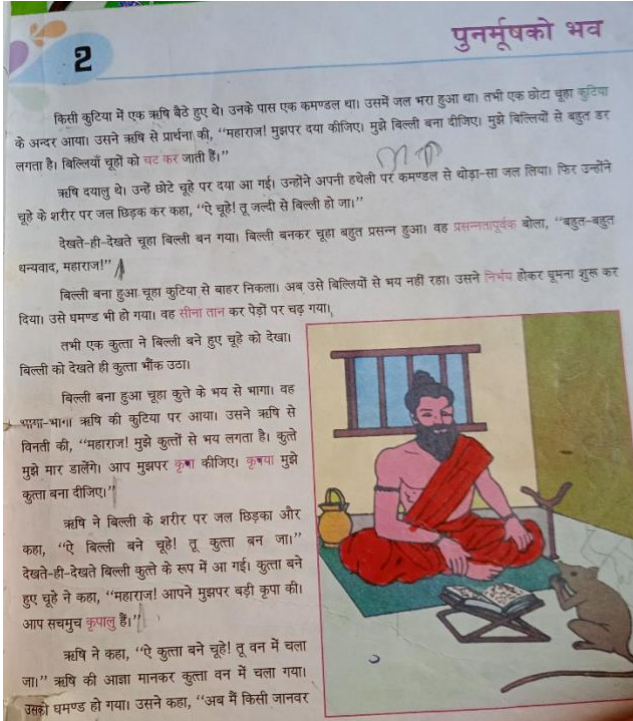 2
पुनर्मूषको भव
किसी कुटिया में एक ऋषि बैठे हुए थे। उनके पास एक कमण्डल था। उसमें जल भरा हुआ था। तभी एक छोटा चूहा कुटिया
के अन्दर आया। उसने ऋषि से प्रार्थना की, “महाराज! मुझपर दया कीजिए। मुझे बिल्ली बना दीजिए। मुझे बिल्लियों से बहुत डर
लगता है। बिल्लियाँ चूहों को चट कर जाती हैं।”
ऋषि दयालु थे। उन्हें छोटे चूहे पर दया आ गई। उन्होंने अपनी हथेली पर कमण्डल से थोड़ा-सा जल लिया। फिर उन्होंने
चूहे के शरीर पर जल छिड़क कर कहा, “ऐ चूहे! तू जल्दी से बिल्ली हो जा।”
देखते-ही-देखते चूहा बिल्ली बन गया। बिल्ली बनकर चूहा बहुत प्रसन्न हुआ। वह प्रसन्नतापूर्वक बोला, “बहुत-बहुत
धन्यवाद, महाराज!”
बिल्ली बना हुआ चूहा कुटिया से बाहर निकला। अब उसे बिल्लियों से भय नहीं रहा। उसने निर्भय होकर घूमना शुरू कर
दिया। उसे घमण्ड भी हो गया। वह सीना तान कर पेड़ों पर चढ़ गया।
तभी एक कुत्ता ने बिल्ली बने हुए चूहे को देखा।
बिल्ली को देखते ही कुत्ता भौंक उठा।
बिल्ली बना हुआ चूहा कुत्ते के भय से भागा। वह
भागा-भागा ऋषि की कुटिया पर आया। उसने ऋषि से
विनती की, “महाराज! मुझे कुत्तों से भय लगता है। कुत्ते
मुझे मार डालेंगे। आप मुझपर कृपा कीजिए। कृपया मुझे
कुत्ता बना दीजिए।”
ऋषि ने बिल्ली के शरीर पर जल छिड़का और
कहा, “ऐ बिल्ली बने चूहे! तू कुत्ता बन जा।”
देखते-ही-देखते बिल्ली कुत्ते के रूप में आ गई। कुत्ता बने
हुए चूहे ने कहा, “महाराज! आपने मुझपर बड़ी कृपा की।
आप सचमुच कृपालु हैं।”
ऋषि ने कहा, “ऐ कुत्ता बने चूहे! तू वन में चला
जा।” ऋषि की आज्ञा मानकर कुत्ता वन में चला गया।
उसको घमण्ड हो गया। उसने कहा, “अब मैं किसी जानवर